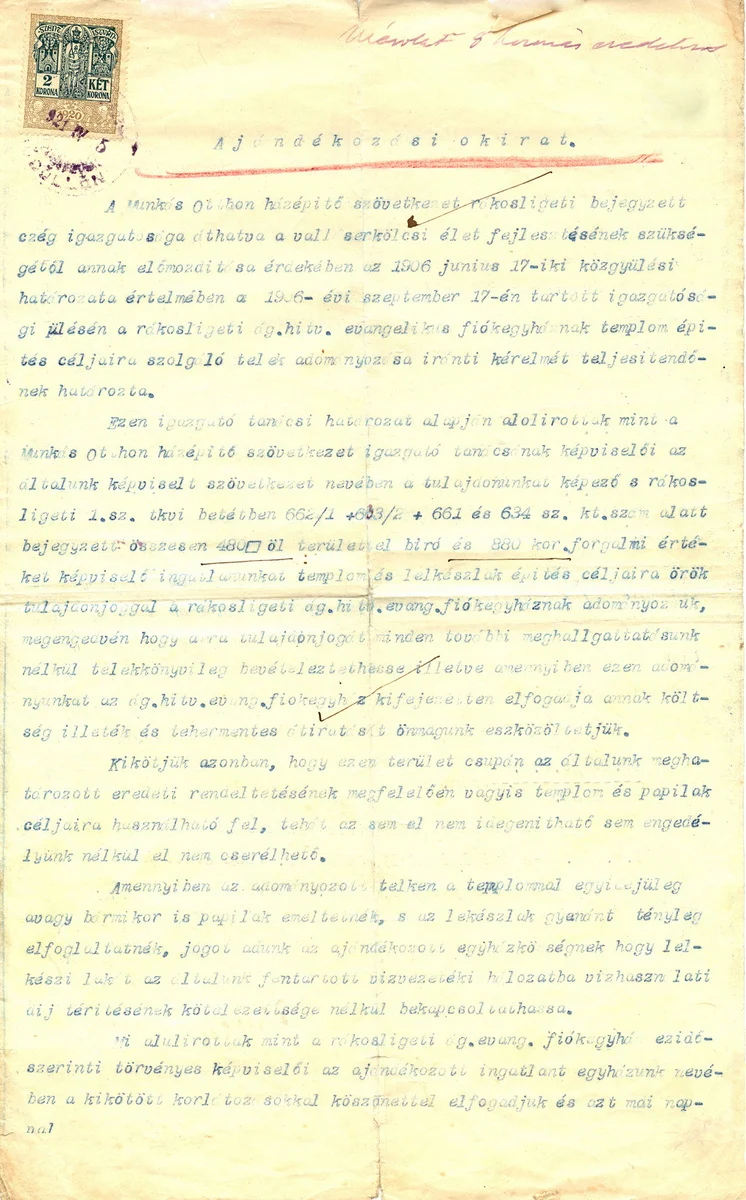 2
KORONA
KÉT
KORONA
1920
921 IV 5
Ajándékozási okirat.
A Munkás Otthon házépitő szövetkezet rákosligeti bejegyzett
czég igazgatósága áthatva a vallaserkölcsi élet fejlesztésének szüksé-
gétől annak előmozditása érdekében az 1906 junius 17-iki közgyülési
határozata értelmében a 1906- évi szeptember 17-én tartott igazgatósá-
gi ülésén a rákosligeti ág.hitv. evangelikus fiókegyháznak templom épi-
tés céljaira szolgáló telek adományozása iránti kérelmét teljesitendő-
nek határozta.
Ezen igazgató tanácsi határozat alapján alolirottak mint a
Munkás Otthon házépitő szövetkezet igazgató tanácsának képviselői az
általunk képviselt szövetkezet nevében a tulajdonunkat képező s rákos-
ligeti 1.sz. tkvi betétben 662/1 + 2 + 661 és 634 sz. kt.szam alatt
bejegyzett összesen 480□ öl területtel biró és 880 kor.forgalmi érté-
ket képviselő ingatlanunkat templom és lelkészlak épités céljaira örök
tulajdonjoggal a rákosligeti ág.hitv.evang.fiókegyháznak adományozzuk,
megengedvén hogy arra tulajdonjogát minden további meghallgattatásunk
nélkül telekkönyvileg bevételeztethesse illetve amennyiben ezen adomá-
nyunkat az ág.hitv.evang.fiokegyház kifejezetten elfogadja annak költ-
ség illeték és tehermentes átiratását önmagunk eszközöltetjük.
Kikötjük azonban, hogy ezen terület csupán az általunk megha-
tározott eredeti rendeltetésének megfelelően vagyis templom és papilak
céljaira használható fel, tehát az sem el nem idegenitható sem engedé-
lyünk nélkül el nem cserélhető.
Amennyiben az adományozott telken a templommal egyidejüleg
avagy bármikor is papilak emeltetnék, s az lekészlak gyanánt tényleg
elfoglaltatnék, jogot adunk az ajándékozott egyházkö ségnek hogy lel-
készi lakát az általunk fentartott vizvezetéki hálozatba vizhasználati
dij téritésének kötelezettsége nélkül bekapcsoltathassa.
Mi alulirottak mint a rákosligeti ág.evang. fiókegyház ezidő-
szerinti törvényes képviselői az ajándékozott ingatlant egyházunk nevé-
ben a kikötött korlátozásokkal köszönettel elfogadjuk és azt mai nap-
nal